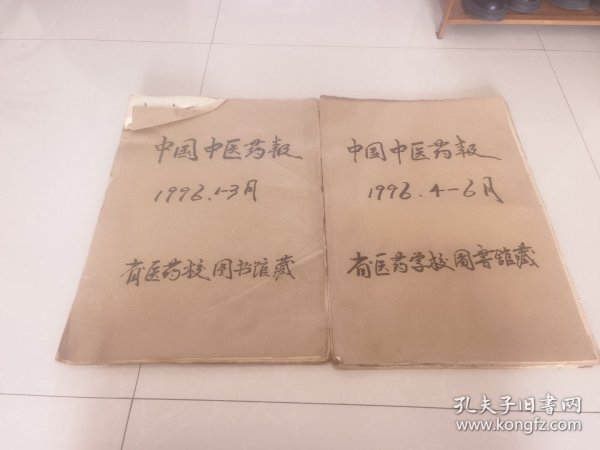 中国中医药报
1996.1-3月
省医药校图书馆藏
中国中医药報
1996.4-6月
省医药学校圖書館藏
孔夫子旧書网
www.kongfz.com